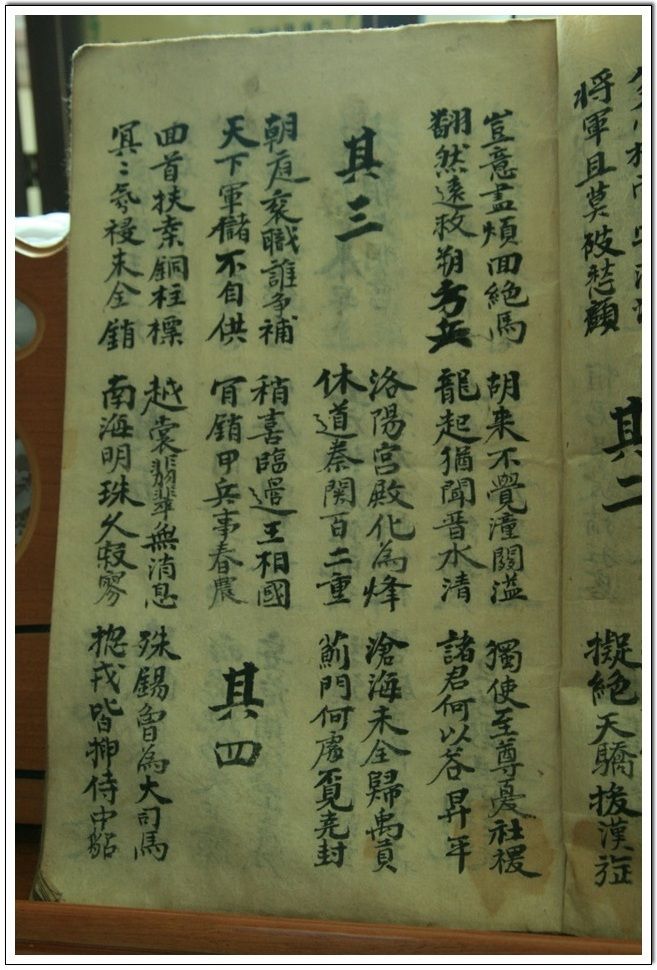 將軍且莫破愁顏
其二
擬絕天驕拔漢旌
豈意盡煩回絶馬
翻然遠救朔方兵
胡来不覺潼關溢
龍起猶聞晋水清
獨使至尊憂社稷
諸君何以荅昇平
其三
洛陽宮殿化為烽
休道秦関百二重
滄海未全歸禹貢
薊門何處覓尭封
朝庭衮職誰爭補
天下軍儲不自供
稍喜臨邊王相國
肯銷甲兵事春農
其四
回首扶桒銅柱標
冥〻氛祲未全銷
越裳翡翠無消息
南海明珠久寂寥
殊錫曾為大司馬
捴戎皆挿侍中貂